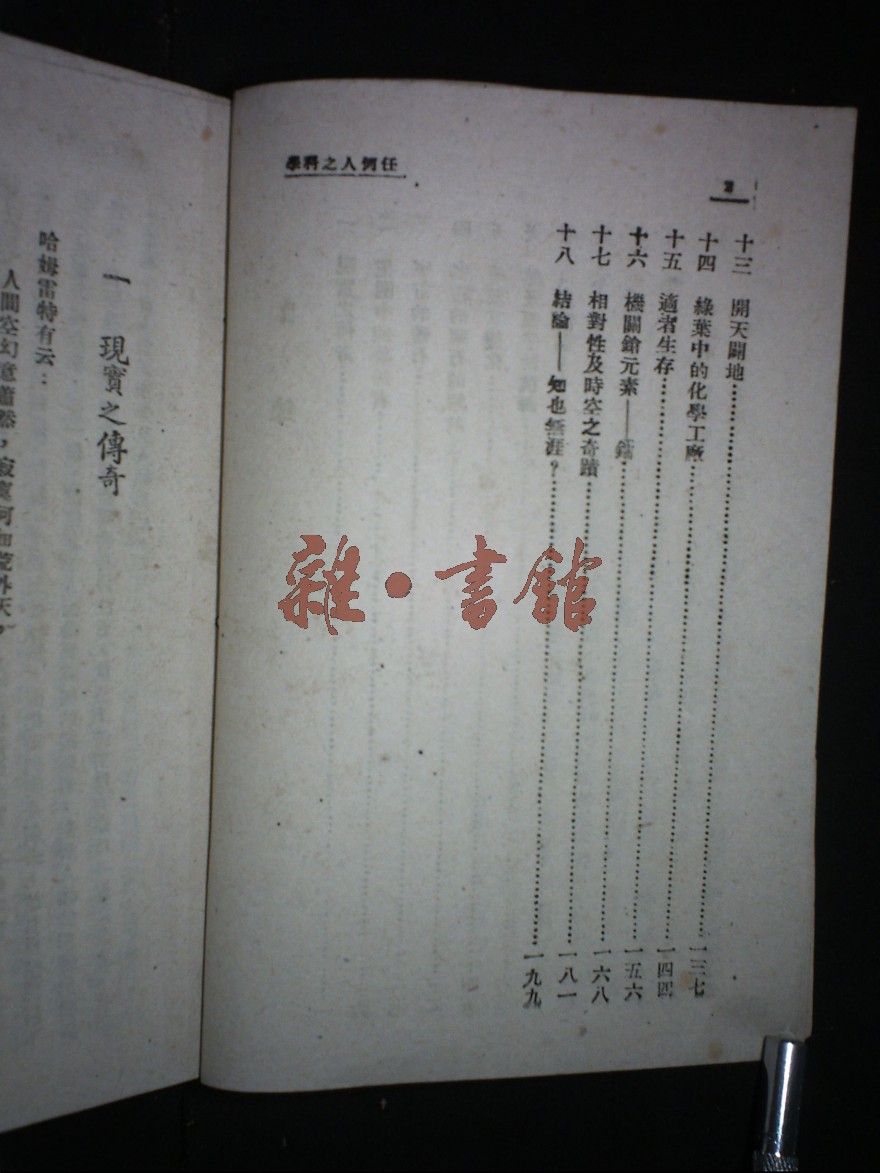 2
任何人之科學
十三 開天闢地……一三七
十四 綠葉中的化學工廠……一四四
十五 適者生存……一五六
十六 機關鎗元素——鐳……一六八
十七 相對性及時空之奇蹟……一八一
十八 結論——知也無涯？……一九九
雜·書館
一 現實之傳奇
哈姆雷特有云：
人間空幻意蕭然，寂寞何如荒外天，